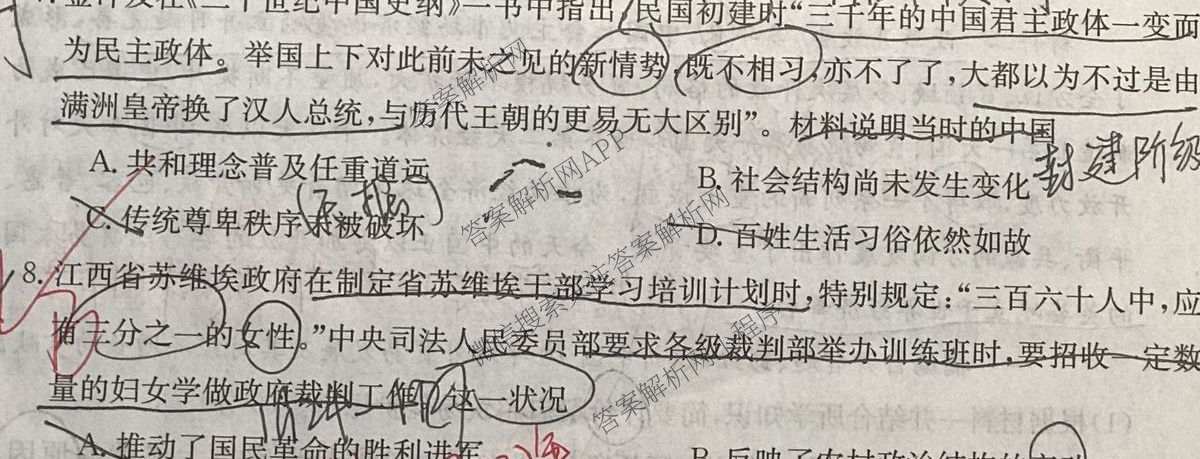 金冲及在《二十世纪中国史纲》一书中指出,民国初建时“三千年的中国君主政体一变而
为民主政体。举国上下对此前未之见的新情势,既不相习,亦不了了,大都以为不过是由
满洲皇帝换了汉人总统,与历代王朝的更易无大区别”。材料说明当时的中国
A. 共和理念普及任重道远
B. 社会结构尚未发生变化
封建阶级
C. 传统尊卑秩序未被破坏
D. 百姓生活习俗依然如故
8. 江西省苏维埃政府在制定省苏维埃干部学习培训计划时,特别规定:“三百六十人中,应
有三分之一的女性。”中央司法人民委员部要求各级裁判部举办训练班时,要招收一定数
量的妇女学做政府裁判工作。这一状况
A. 推动了国民革命的胜利进军
答案解析网APP
微信搜索关注答案解析网
答案解析网小程序